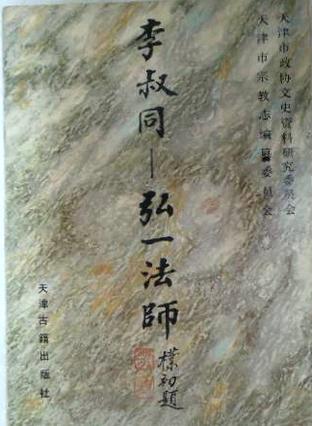 天津市政协文史资料研究委员会
天津市宗教志编纂委员会
李叔同—弘一法師
樸初題
天津古籍出版社